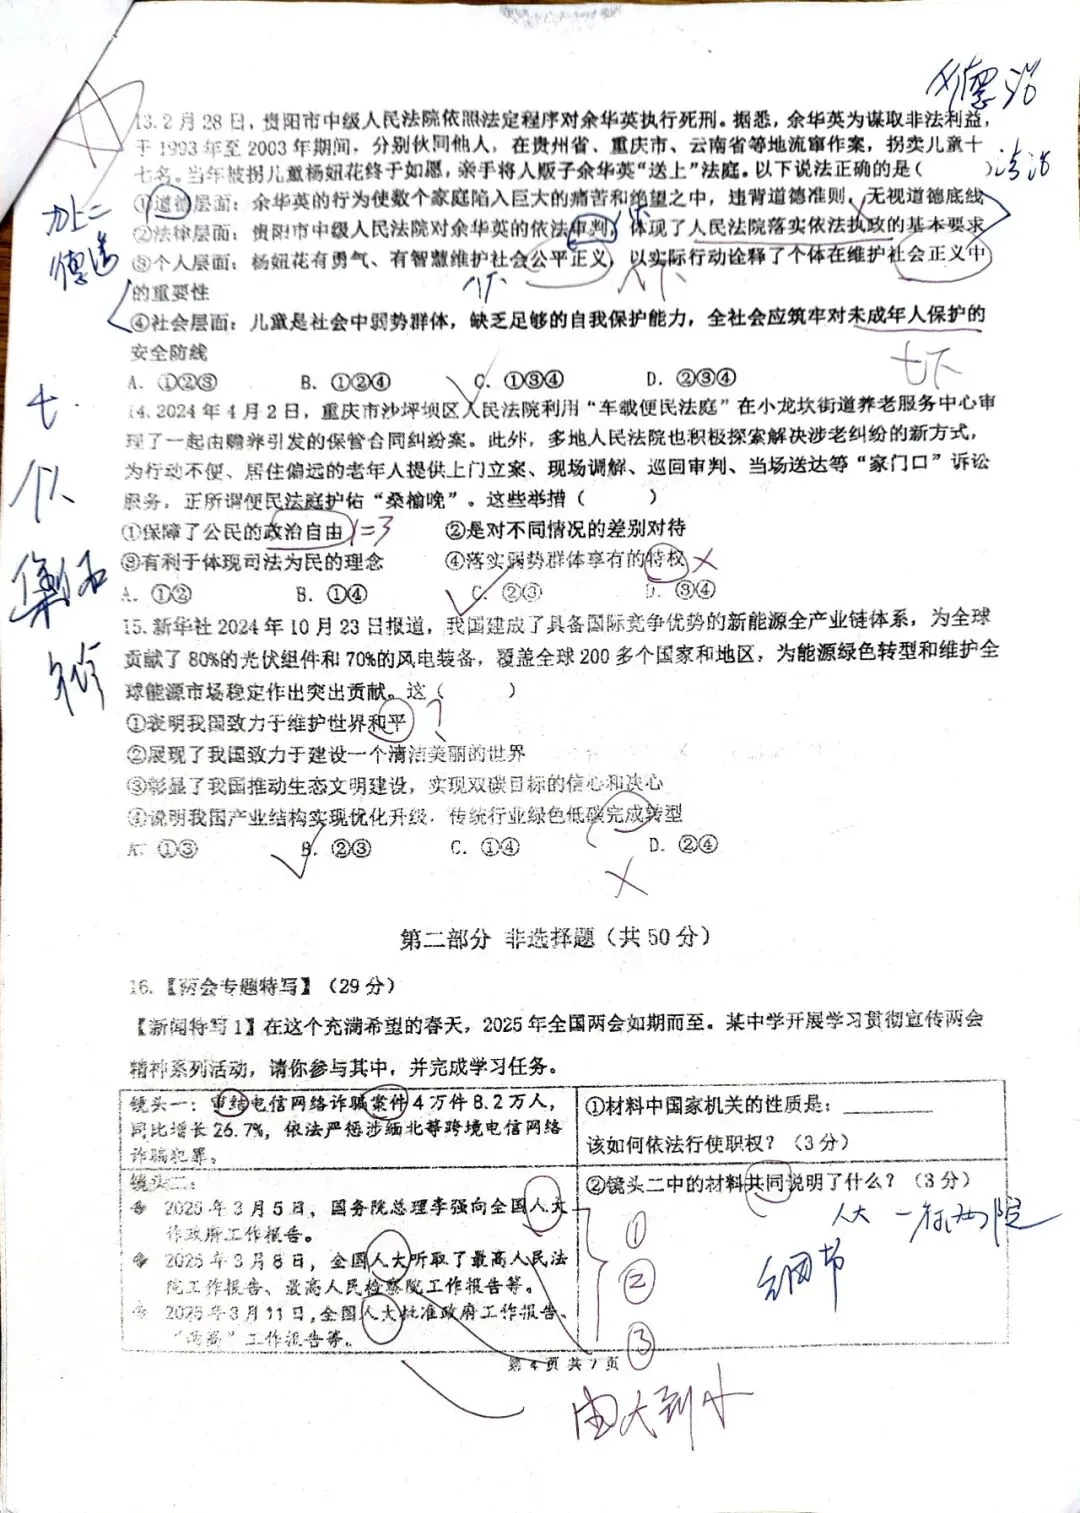 德治
法治
13.2月28日，贵阳市中级人民法院依照法定程序对余华英执行死刑。据悉，余华英为谋取非法利益，
于1993年至2003年期间，分别伙同他人，在贵州省、重庆市、云南省等地流窜作案，拐卖儿童十
七名。当年被拐儿童杨妞花终于如愿，亲手将人贩子余华英“送上”法庭。以下说法正确的是（　　）
①道德层面：余华英的行为使数个家庭陷入巨大的痛苦和绝望之中，违背道德准则，无视道德底线
②法律层面：贵阳市中级人民法院对余华英的依法审判，体现了人民法院落实依法执政的基本要求
③个人层面：杨妞花有勇气、有智慧维护社会公平正义，以实际行动诠释了个体在维护社会正义中
的重要性
④社会层面：儿童是社会中弱势群体，缺乏足够的自我保护能力，全社会应筑牢对未成年人保护的
安全防线
七下
A. ①②③ B. ①②④ C. ①③④ D. ②③④
14.2024年4月2日，重庆市沙坪坝区人民法院利用“车载便民法庭”在小龙坎街道养老服务中心审
理了一起由赡养引发的保管合同纠纷案。此外，多地人民法院也积极探索解决涉老纠纷的新方式，
为行动不便、居住偏远的老年人提供上门立案、现场调解、巡回审判、当场送达等“家门口”诉讼
服务，正所谓便民法庭护佑“桑榆晚”。这些举措（　　）
①保障了公民的政治自由 ②是对不同情况的差别对待
③有利于体现司法为民的理念 ④落实弱势群体享有的特权
A. ①② B. ①④ C. ②③ D. ③④
15.新华社2024年10月23日报道，我国建成了具备国际竞争优势的新能源全产业链体系，为全球
贡献了80%的光伏组件和70%的风电装备，覆盖全球200多个国家和地区，为能源绿色转型和维护全
球能源市场稳定作出突出贡献。这（　　）
①表明我国致力于维护世界和平 ?
②展现了我国致力于建设一个清洁美丽的世界
③彰显了我国推动生态文明建设，实现双碳目标的信心和决心
④说明我国产业结构实现优化升级，传统行业绿色低碳完成转型
A. ①③ B. ②③ C. ①④ D. ②④
第二部分 非选择题（共50分）
16.【两会专题特写】（29分）
【新闻特写1】在这个充满希望的春天，2025年全国两会如期而至。某中学开展学习贯彻宣传两会
精神系列活动，请你参与其中，并完成学习任务。
镜头一：审结电信网络诈骗案件4万件8.2万人，
同比增长26.7%，依法严惩涉缅北等跨境电信网络
诈骗犯罪。
①材料中国家机关的性质是：________
该如何依法行使职权？（3分）
镜头二：
2025年3月5日，国务院总理李强向全国人大
作政府工作报告。
2025年3月8日，全国人大听取了最高人民法
院工作报告、最高人民检察院工作报告等。
2025年3月11日,全国人大批准政府工作报告、
“两高”工作报告等。
②镜头二中的材料共同说明了什么？（3分）
人大 一府两院
①
②
③
第4页共7页
由大到小